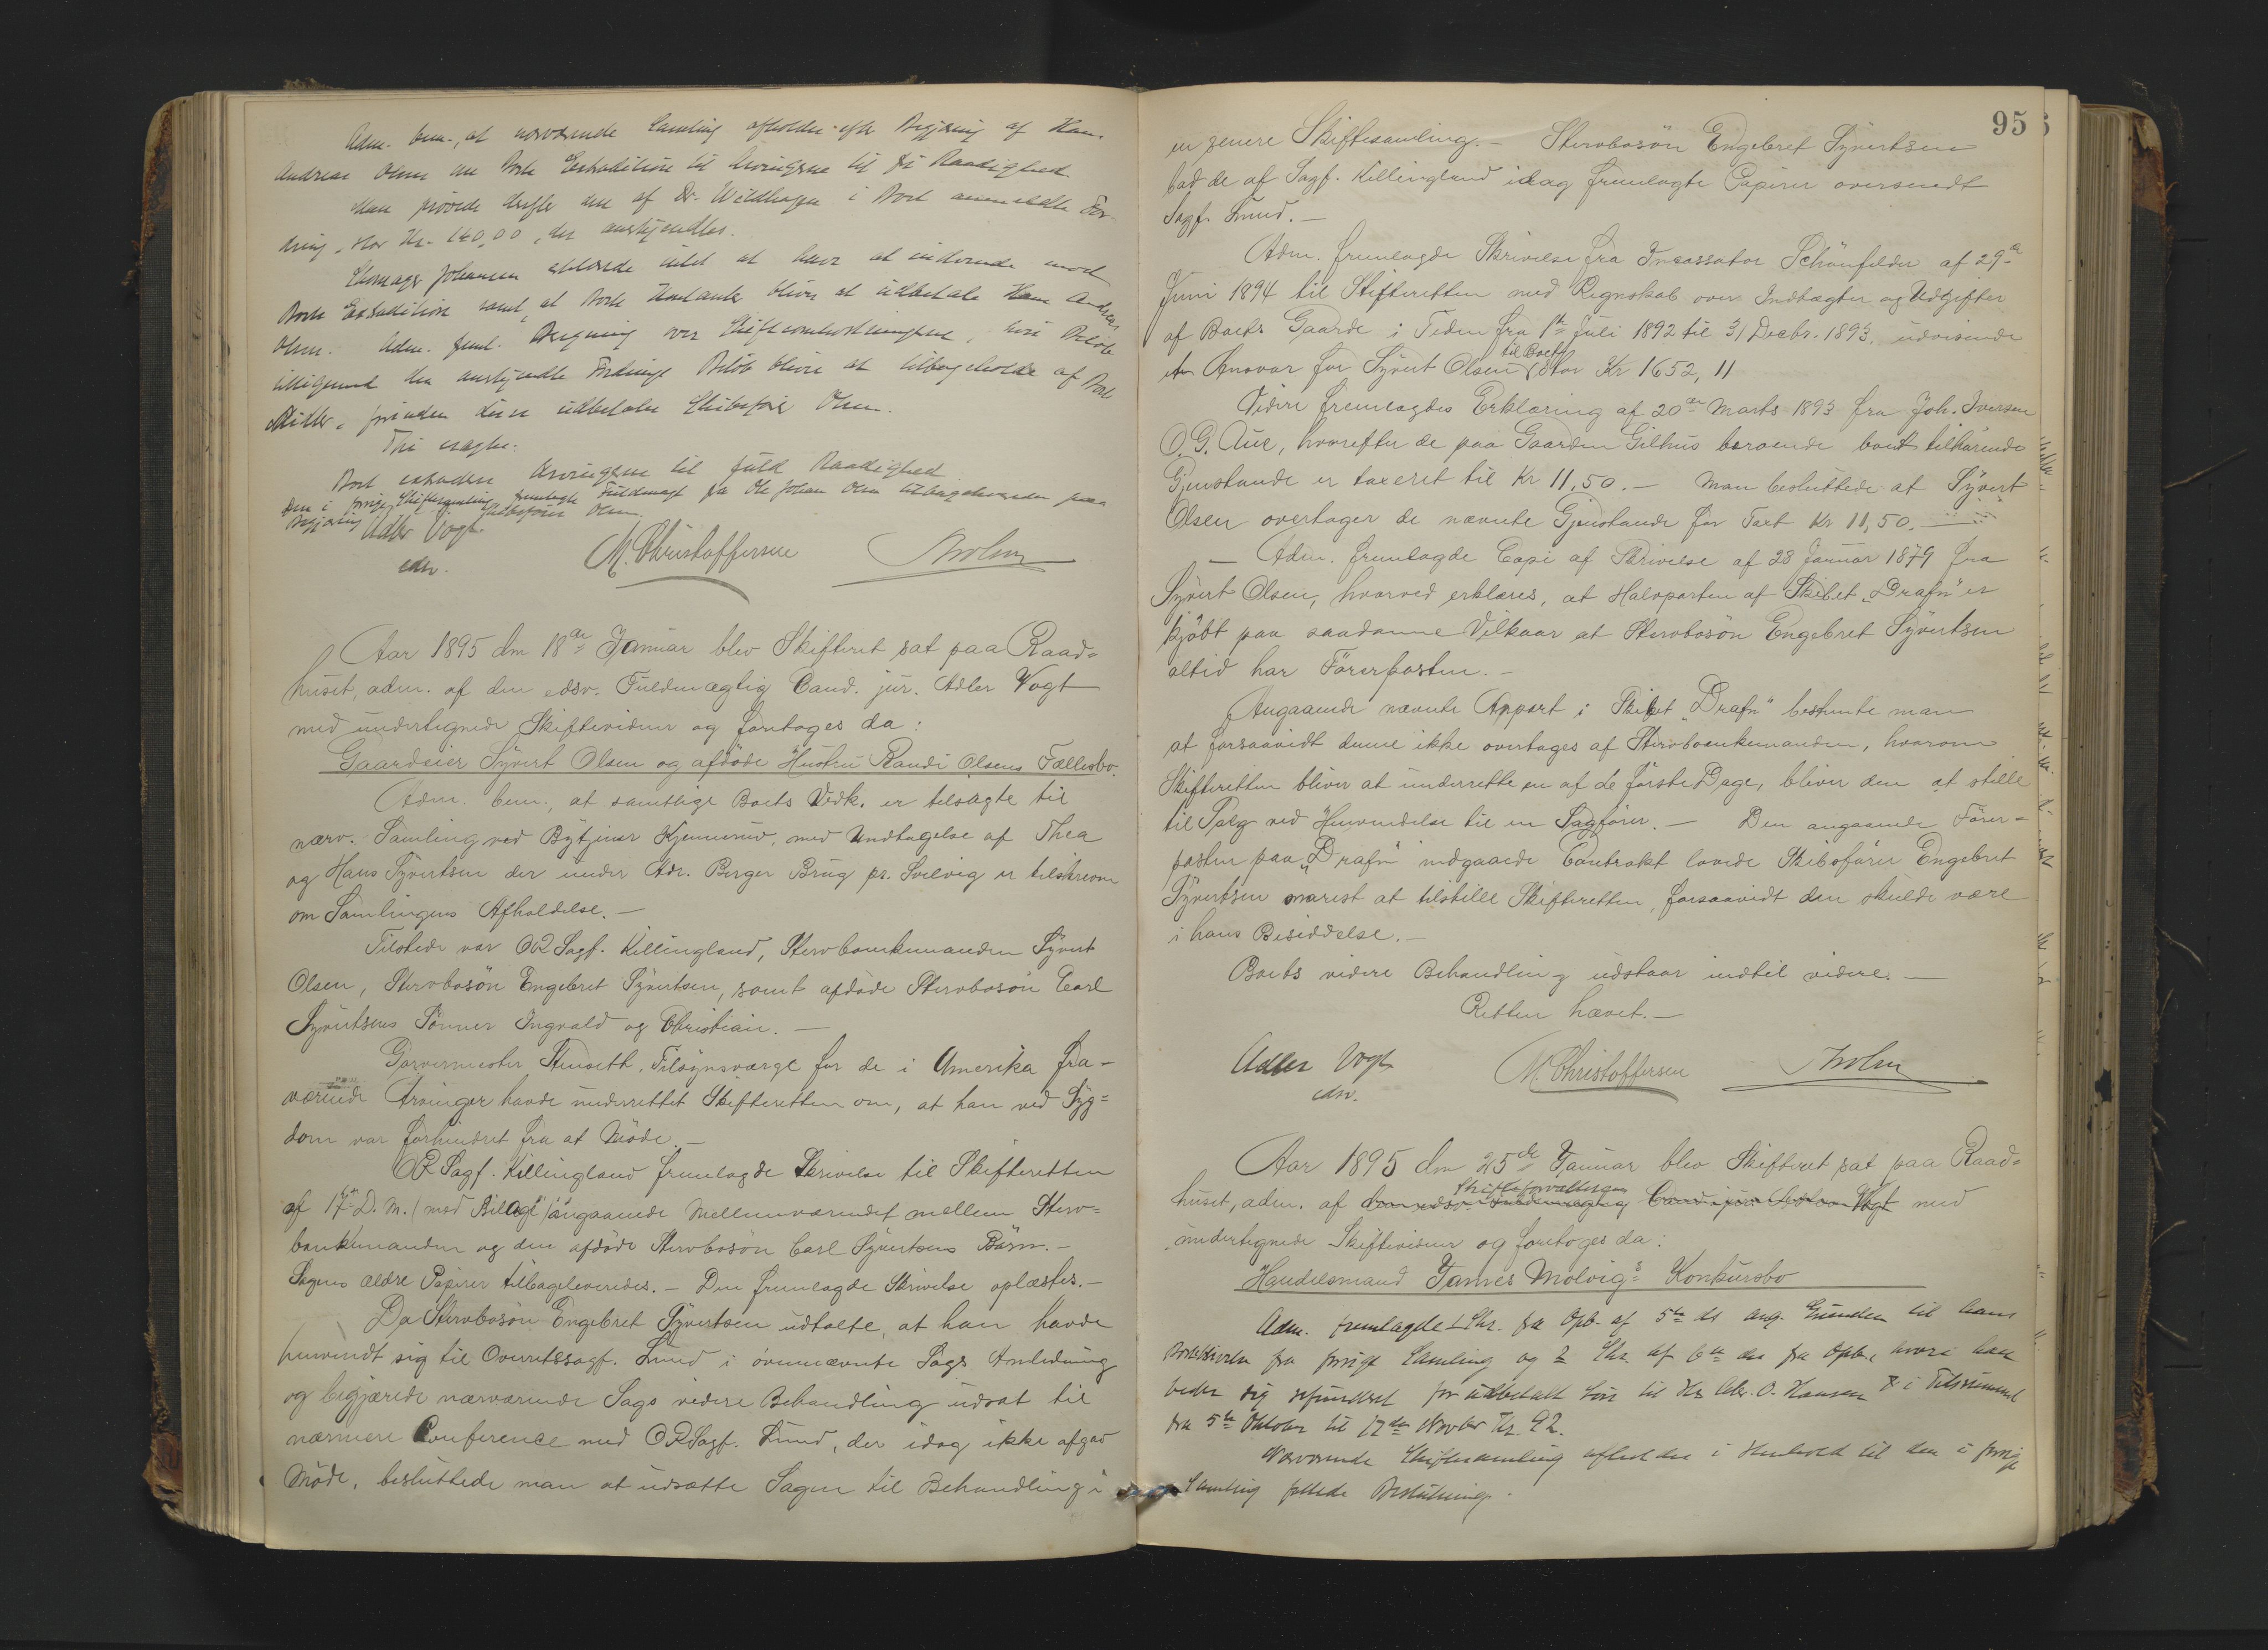 Adm. bem., at nærværende Samling afholdes efter Begjæring af Hans
Andreas Olsen om Boets Extradition til Arvingerne til fri Raadighed.
Man prøvede derefter den af Dr. Wildhagen i Boet anmeldte For-
dring, stor Kr. 140,00, der anerkjendtes.
Johansen erklærede intet at have at indvende mod
Boets Extradition samt, at Boets Kontanter bliver at udbetale Hans Andreas
Olsen. Adm. freml. Beregning over Skifteomkostningerne, hvis Beløb
tilligemed den anerkjendte Fordrings Beløb bliver at tilbageholde af Boets
Midler, forinden disse udbetales Skibsfører Olsen.
Thi eragtes:
Boet extraderes Arvingerne til fuld Raadighed
Den i forrige Skiftesamling fremlagte Fuldmagt fra Ole Johan Olsen tilbageleveredes paa
Begjæring Skibsfører Olsen.
Adler Vogt
edsv.
M. Christoffersen
Aar 1895 den 18de Januar blev Skifteret sat paa Raad-
huset, adm. af den edsv. Fuldmægtig Cand. jur. Adler Vogt
med undertegnede Skiftevidner og foretoges da:
Gaardeier Syvert Olsen og afdöde Hustru Randi Olsens Fællesbo.
Adm. bem., at samtlige Boets Vedk. er tilsagte til
nærv. Samling ved Bytjener Kjennerud, med Undtagelse af Thea
og Hans Syvertsen der under Adr. Berger Brug pr. Svelvig er tilskrevne
om Samlingens Afholdelse. —
Tilstede var OR Sagf. Killingland, Stervboenkemanden Syvert
Olsen, Stervbosön Engebret Syvertsen, samt afdöde Stervbosön Carl
Syvertsens Sönner Ingvald og Christian. —
Garvermester Stenseth, Tilsynsværge for de i Amerika fra-
værende Arvinger havde underrettet Skifteretten om, at han ved Syg-
dom var forhindret fra at Möde. —
OR Sagf. Killingland fremlagde Skrivelse til Skifteretten
af 17de D. M. (med Bilage) angaaende Mellemværendet mellem Sterv-
boenkemanden og den afdöde Stervbosön Carl Syvertsens Börn. —
Sagens ældre Papirer tilbageleveredes. — Den fremlagde Skrivelse oplæstes. —
Da Stervbosön Engebret Syvertsen udtalte, at han havde
henvendt sig til Overretssagf. Lund i ovennævnte Sags Anledning
og begjærede nærværende Sags videre Behandling udsat til
nærmere Conference med ORSagf. Lund, der idag ikke afgav
Möde, besluttede man at udsætte Sagen til Behandling i
95
en senere Skiftesamling. — Stervbosön Engebret Syvertsen
bad de af Sagf. Killingland idag fremlagte Papirer oversendt
Sagf. Lund. —
Adm. fremlagde Skrivelse fra Incassator Schönfelder af 29de
Juni 1894 til Skifteretten med Regnskab over Indtægter og Udgifter
af Boets Gaarde i Tiden fra 1ste Juli 1892 til 31 Decbr. 1893, udvisende
et Ansvar for Syvert Olsen til Boet stor Kr 1652,11
Videre fremlagdes Erklæring af 20de Marts 1893 fra Joh. Iversen
O. G. Aue, hvorefter de paa Gaarden Gilhus beroende boet tilhörende
Gjenstande er taxeret til Kr 11,50. — Man besluttede at Syvert
Olsen overtager de nævnte Gjenstande for Taxt Kr 11,50. —
— Adm. fremlagde Copi af Skrivelse af 23 Januar 1879 fra
Syvert Olsen, hvorved erklæres, at Halvparten af Skibet "Drafn" er
kjöbt paa saadanne Vilkaar at Stervbosön Engebret Syvertsen
altid har Förerposten. —
Angaaende nævnte Appart i Skibet "Drafn" bestemte man
at forsaavidt denne ikke overtages af Stervboenkemanden, hvorom
Skifteretten bliver at underrette en af de förste Dage, bliver den at stille
til Salg ved Henvendelse til en Sagförer. — Den angaaende Förer-
posten paa "Drafn" indgaaede Contrakt lovede Skibsförer Engebret
Syvertsen snarest at tilstille Skifteretten, forsaavidt den skulde være
i hans Besiddelse. —
Boets videre Behandling udstaar indtil videre. —
Retten hævet. —
Adler Vogt
edsv.
M. Christoffersen
Aar 1895 den 25de Januar blev Skifteret sat paa Raad-
huset, adm. af Skifteforvalteren med
undertegnede Skiftevidner og foretoges da:
Handelsmand James Molvigs Konkursbo
Adm. fremlagde 1 Skr. fra Opb. af 5te ds ang. Grunden til hans
fra forrige Samling og 2 Skr. af 6te ds fra Opb., hvori han
beder sig refunderet for udbetalt Lön til Hr. Alex. O. Hansen
fra 5te Oktober til 17de Novbr Kr. 92.
Nærværende Skiftesamling afholdes i Henhold til den i forrige
Samling fattede Beslutning.